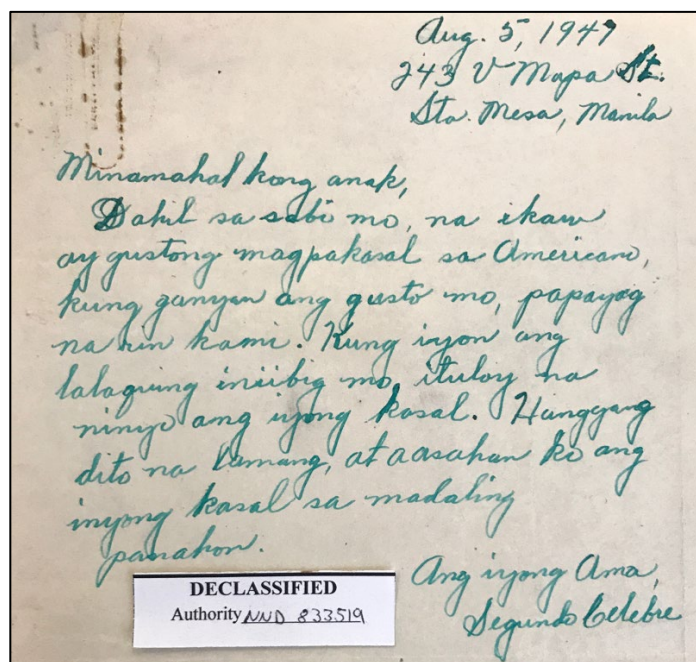 Aug. 5, 1947
243 V Mapa St.
Sta. Mesa, Manila
Minamahal kong anak,
Dahil sa sabi mo, na ikaw
ay gustong magpakasal sa Americano,
kung ganyan ang gusto mo, papayag
na rin kami. Kung iyon ang
lalaquing iniibig mo, ituloy na
ninyo ang iyong kasal. Hanggang
dito na lamang, at aasahan ko ang
inyong kasal sa madaling
panahon.
Ang iyong Ama,
Segundo Celebre
DECLASSIFIED
Authority NND 833519